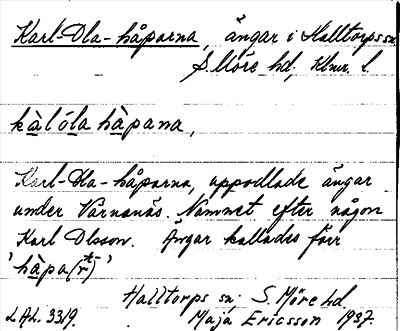 Karl-Ola-håparna, ängar i Halltorps sn.
S. Möre hd, Klmr. l.
kàlólahàpana,
Karl-Ola-håparna, uppodlade ängar
under Värnanäs. Namnet efter någon
Karl Olsson. Ängar kallades förr
'hàpa(r)'
Halltorps sn; S. Möre hd
L.A.L. 3319. Maja Ericsson 1937.